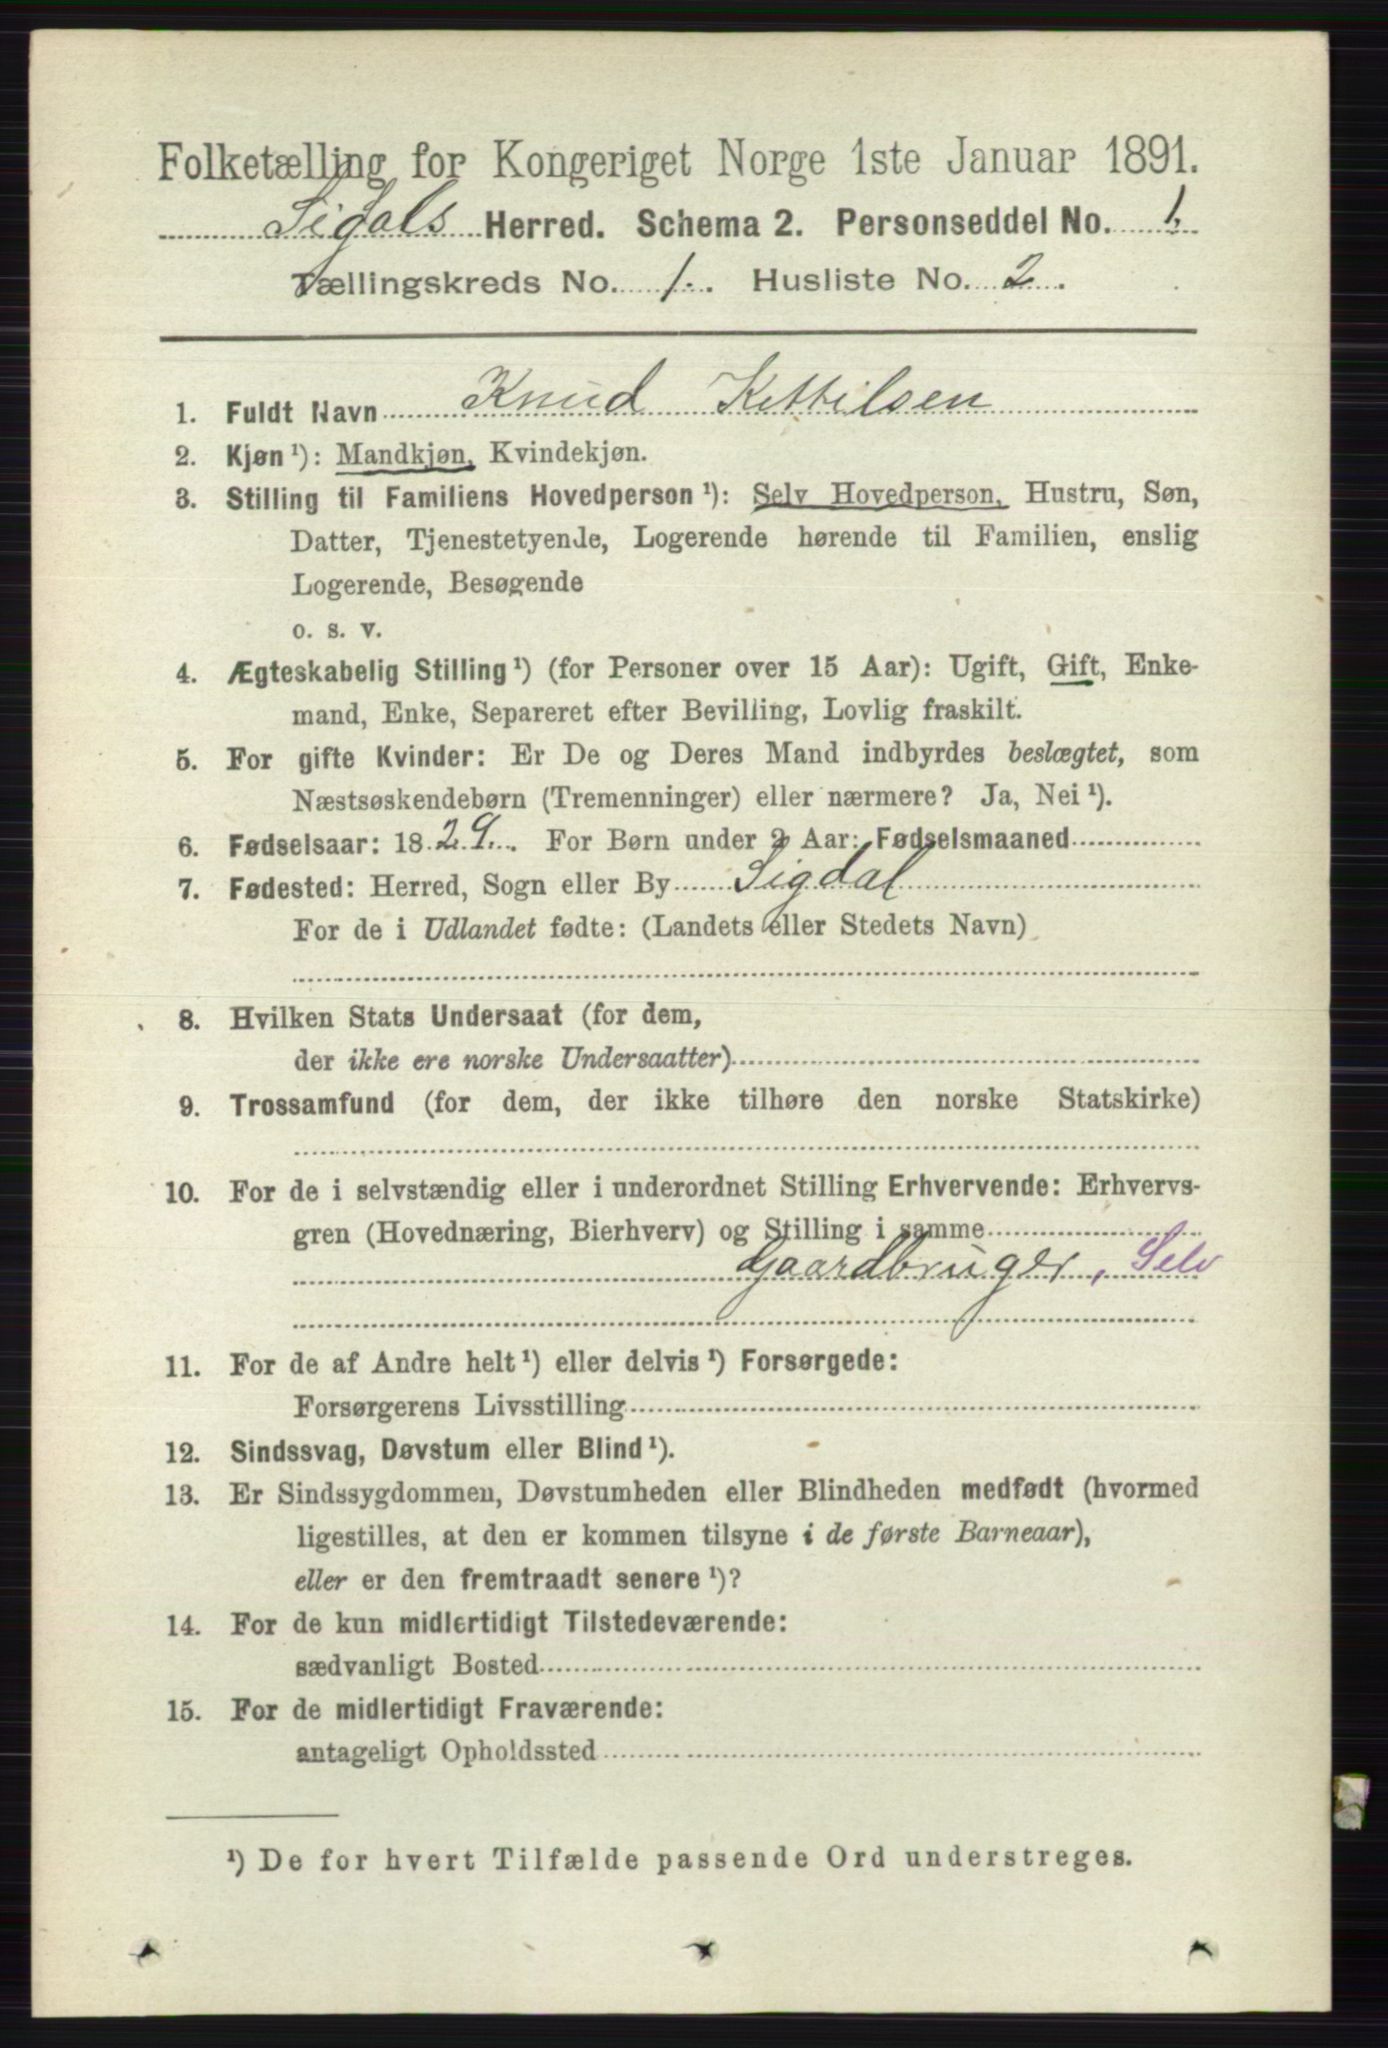 Folketælling for Kongeriget Norge 1ste Januar 1891.
Sigdals Herred. Schema 2. Personseddel No. 1.
Tællingskreds No. 1. Husliste No. 2.
1. Fuldt Navn Knud Kettilsen
2. Kjøn ¹): Mandkjøn, Kvindekjøn.
3. Stilling til Familiens Hovedperson ¹): Selv Hovedperson, Hustru, Søn,
Datter, Tjenestetyende, Logerende hørende til Familien, enslig
Logerende, Besøgende
o. s. v.
4. Ægteskabelig Stilling ¹) (for Personer over 15 Aar): Ugift, Gift, Enke-
mand, Enke, Separeret efter Bevilling, Lovlig fraskilt.
5. For gifte Kvinder: Er De og Deres Mand indbyrdes beslægtet, som
Næstsøskendebørn (Tremenninger) eller nærmere? Ja, Nei ¹).
6. Fødselsaar: 1829. For Børn under 2 Aar: Fødselsmaaned
7. Fødested: Herred, Sogn eller By Sigdal
For de i Udlandet fødte: (Landets eller Stedets Navn)
8. Hvilken Stats Undersaat (for dem,
der ikke ere norske Undersaatter)
9. Trossamfund (for dem, der ikke tilhøre den norske Statskirke)
10. For de i selvstændig eller i underordnet Stilling Erhvervende: Erhvervs-
gren (Hovednæring, Bierhverv) og Stilling i samme
Gaardbruger, Selv
11. For de af Andre helt ¹) eller delvis ¹) Forsørgede:
Forsørgerens Livsstilling
12. Sindssvag, Døvstum eller Blind ¹).
13. Er Sindssygdommen, Døvstumheden eller Blindheden medfødt (hvormed
ligestilles, at den er kommen tilsyne i de første Barneaar),
eller er den fremtraadt senere ¹)?
14. For de kun midlertidigt Tilstedeværende:
sædvanligt Bosted
15. For de midlertidigt Fraværende:
antageligt Opholdssted
¹) De for hvert Tilfælde passende Ord understreges.